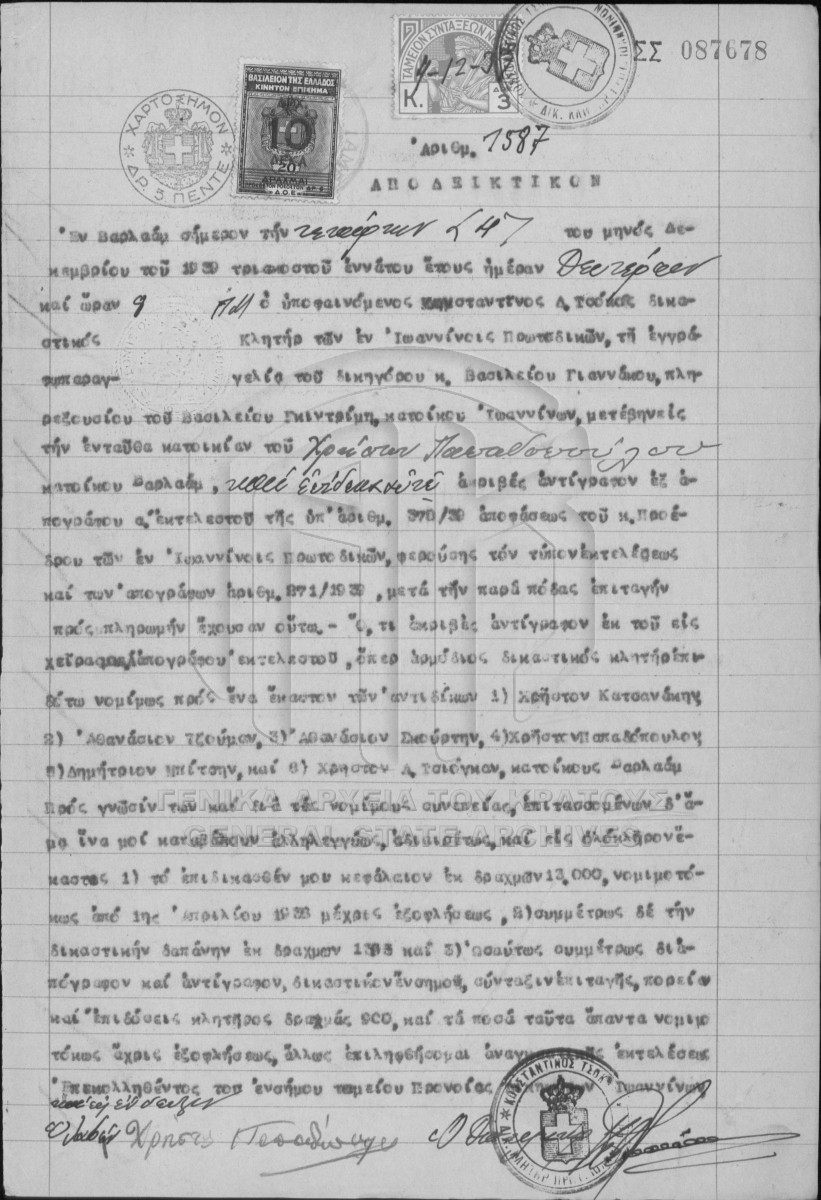 ΣΣ 087678
ΤΑΜΕΙΟΝ ΣΥΝΤΑΞΕΩΝ
Κ. 3
ΒΑΣΙΛΕΙΟΝ ΤΗΣ ΕΛΛΑΔΟΣ
ΚΙΝΗΤΟΝ ΕΠΙΣΗΜΑ
10
ΔΕΚΑ
20
ΔΡΑΧΜΑΙ
ΧΑΡΤΟΣΗΜΟΝ
ΔΡ. 5 ΠΕΝΤΕ
Ἀριθμ. 1587
ΑΠΟΔΕΙΚΤΙΚΟΝ
Ἐν Βαρλαάμ σήμερον τήν τετάρτην (4) του μηνός Δε-
κεμβρίου τοῦ 1939 τριακοστοῦ ἐννάτου ἔτους ἡμέραν Δευτέραν
καί ὥραν 9 πμ ὁ ὑποφαινόμενος Κωνσταντῖνος Δ. Τσόκας δικα-
στικός Κλητήρ τῶν ἐν Ἰωαννίνοις Πρωτοδικῶν, τῇ ἐγγρά-
φῳ παραγ- γελίᾳ τοῦ δικηγόρου κ. Βασιλείου Γιαννάκου, πλη-
ρεξουσίου τοῦ Βασιλείου Γκιντρίμη, κατοίκου Ἰωαννίνων, μετέβην εἰς
τήν ἐνταῦθα κατοικίαν τοῦ Χρήστου Παπαδοπούλου
κατοίκου Βαρλαάμ, ἀκριβές ἀντίγραφον ἐξ ἀ-
πογράφου α.'ἐκτελεστοῦ τῆς ὑπ' ἀριθμ. 370/39 ἀποφάσεως τοῦ κ. Προέ-
δρου τῶν ἐν Ἰωαννίνοις Πρωτοδικῶν, φερούσης τόν τύπον ἐκτελέσεως
καί των ἀπογράφων ἀριθμ. 271/1939, μετά τήν παρά πόδας ἐπιταγήν
πρός πληρωμήν ἔχουσαν οὕτω.- Ὅ,τι ἀκριβές ἀντίγραφον ἐκ τοῦ εἰς
χεῖρας μου ἀπογράφου ἐκτελεστοῦ, ὅπερ ἁρμόδιος δικαστικός κλητήρ ἐπι-
δότω νομίμως πρός ἕνα ἕκαστον τῶν ἀντιδίκων 1) Χρῆστον Κατσανάκην
2) Ἀθανάσιον Τζούμαν, 3) Ἀθανάσιον Σκούρτην, 4) Χρῆστον Παπαδόπουλον
5) Δημήτριον Μπίτσην, καί 6) Χρῆστον Α. Τσιόγκαν, κατοίκους Βαρλαάμ
Πρός γνῶσίν των καί διά τάς νομίμους συνεπείας, ἐπιτασσομένων δ'ἅ-
μα ἵνα μοί καταβάλουν ἀλληλεγγύως, ἀδιαιρέτως, καί εἰς ὁλόκληρον ἕ-
καστος 1) τό ἐπιδικασθέν μου κεφάλαιον ἐκ δραχμῶν 13.000, νομιμοτό-
κως ἀπό 1ης Ἀπριλίου 1938 μέχρις ἐξοφλήσεως, 2) συμμέτρως δέ τήν
δικαστικήν δαπάνην ἐκ δραχμων 1393 καί 3) Ὡσαύτως συμμέτρως δι'ἀ-
πόγραφον καί ἀντίγραφον, δικαστικόν ἔνσημον, σύνταξιν ἐπιταγῆς, πορείαν
καί ἐπιδόσεις κλητῆρος δραχμάς 900, καί τά ποσά ταῦτα ἅπαντα νομιμο
τόκως ἄχρις ἐξοφλήσεως, ἄλλως ἐπιληφθήσομαι ἀναγκαστικῆς ἐκτελέσεως
Ἐπεκολληθέντος του ἐνσήμου ταμείου Προνοίας Ἰωαννίνων
Χρῆστος Παπαδόπουλος
ΚΩΝΣΤΑΝΤΙΝΟΣ ΤΣΟΚΑΣ
ΓΕΝΙΚΑ ΑΡΧΕΙΑ ΤΟΥ ΚΡΑΤΟΥΣ
GENERAL STATE ARCHIVES